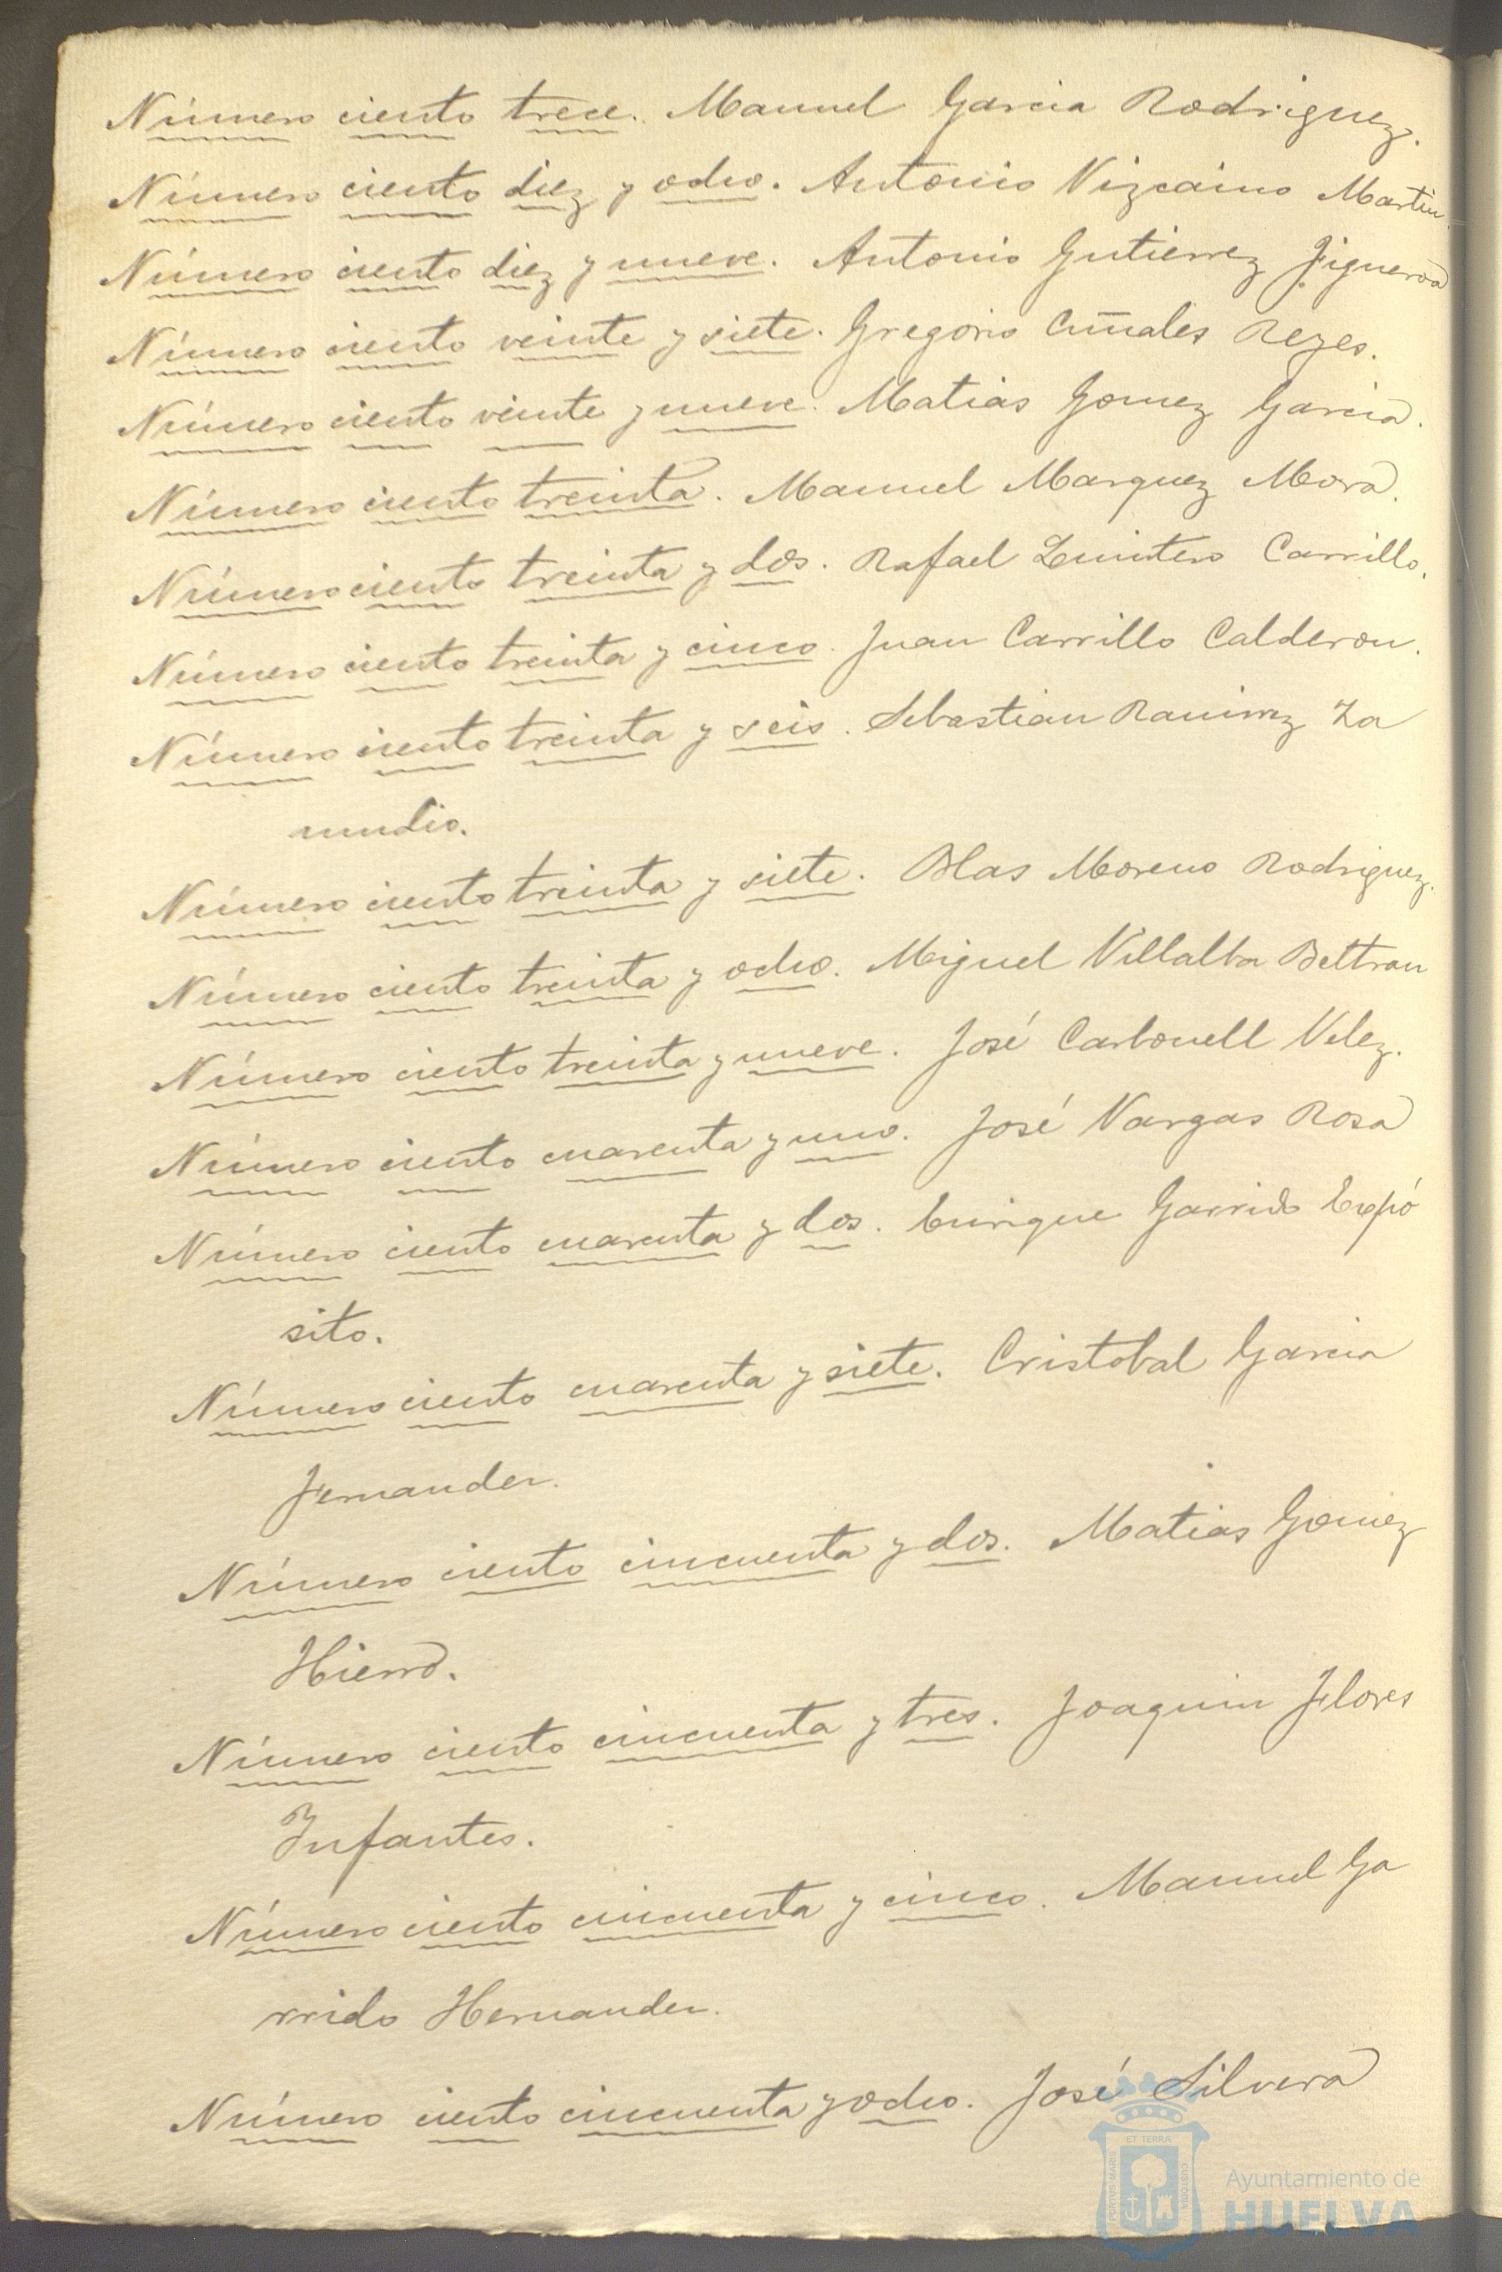 Número ciento trece. Manuel Garcia Rodriguez.
Número ciento diez y ocho. Antonio Vizcaino Martin.
Número ciento diez y nueve. Antonio Gutierrez Figueroa
Número ciento veinte y siete. Gregorio Reyes.
Número ciento veinte y nueve. Matias Gomez Garcia.
Número ciento treinta. Manuel Marquez Mora.
Número ciento treinta y dos. Rafael Quintero Carrillo.
Número ciento treinta y cinco. Juan Carrillo Calderon.
Número ciento treinta y seis. Sebastian Ramirez Za
mudio.
Número ciento treinta y siete. Blas Moreno Rodriguez.
Número ciento treinta y ocho. Miguel Villalba Beltran
Número ciento treinta y nueve. José Carbonell Velez.
Número ciento cuarenta y uno. José Vargas Rosa
Número ciento cuarenta y dos. Enrique Garrido Expó
sito.
Número ciento cuarenta y siete. Cristobal Garcia
Fernandez.
Número ciento cincuenta y dos. Matias Gomez
Hierro.
Número ciento cincuenta y tres. Joaquin Flores
Infantes.
Número ciento cincuenta y cinco. Manuel Ga
rrido Hernandez.
Número ciento cincuenta y ocho. José Silvera
ET TERRA
PORTUS MARIS
CUSTODIA
Ayuntamiento de
HUELVA